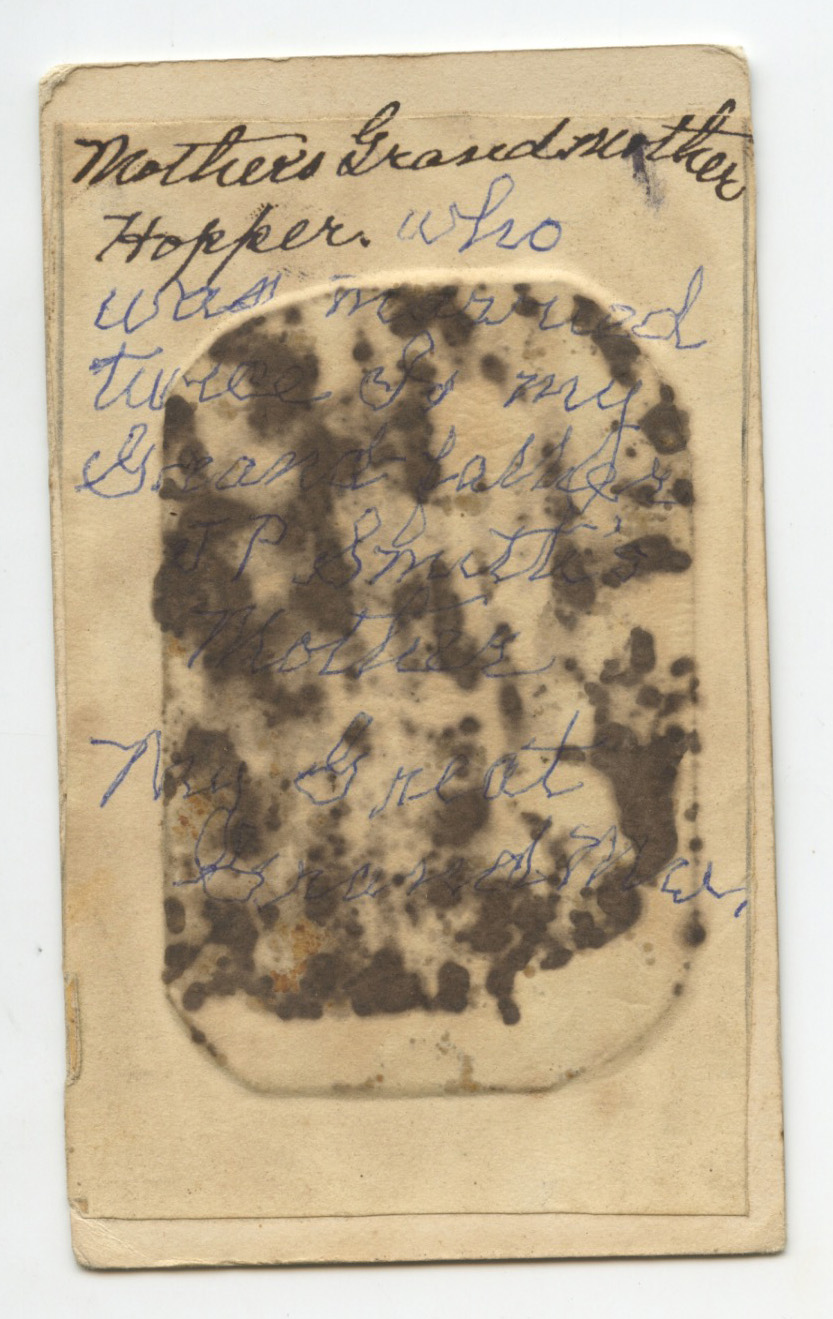 Mother's Grand Mother
Hopper. who
was married
twice Is my
Grand father
J P Smith's
Mother
My Great
Grand Ma.